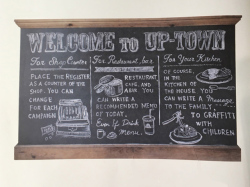 WELCOME TO UP-TOWN
For Shop Counter
PLACE THE REGISTER
AS A COUNTER OF THE
SHOP. YOU CAN
CHANGE
FOR EACH
CAMPAIGN
For Restaurant, bar
RESTAURANT
CAFE AND
ASIDE YOU
CAN WRITE A
RECOMMENDED MEMO
OF TODAY.
Even If Drink
Menu.
For Your Kitchen
OF COURSE, IN
THE KITCHEN OF
THE HOUSE YOU
CAN WRITE A Message
TO THE FAMILY.
TO GRAFFITI
WITH
CHILDREN